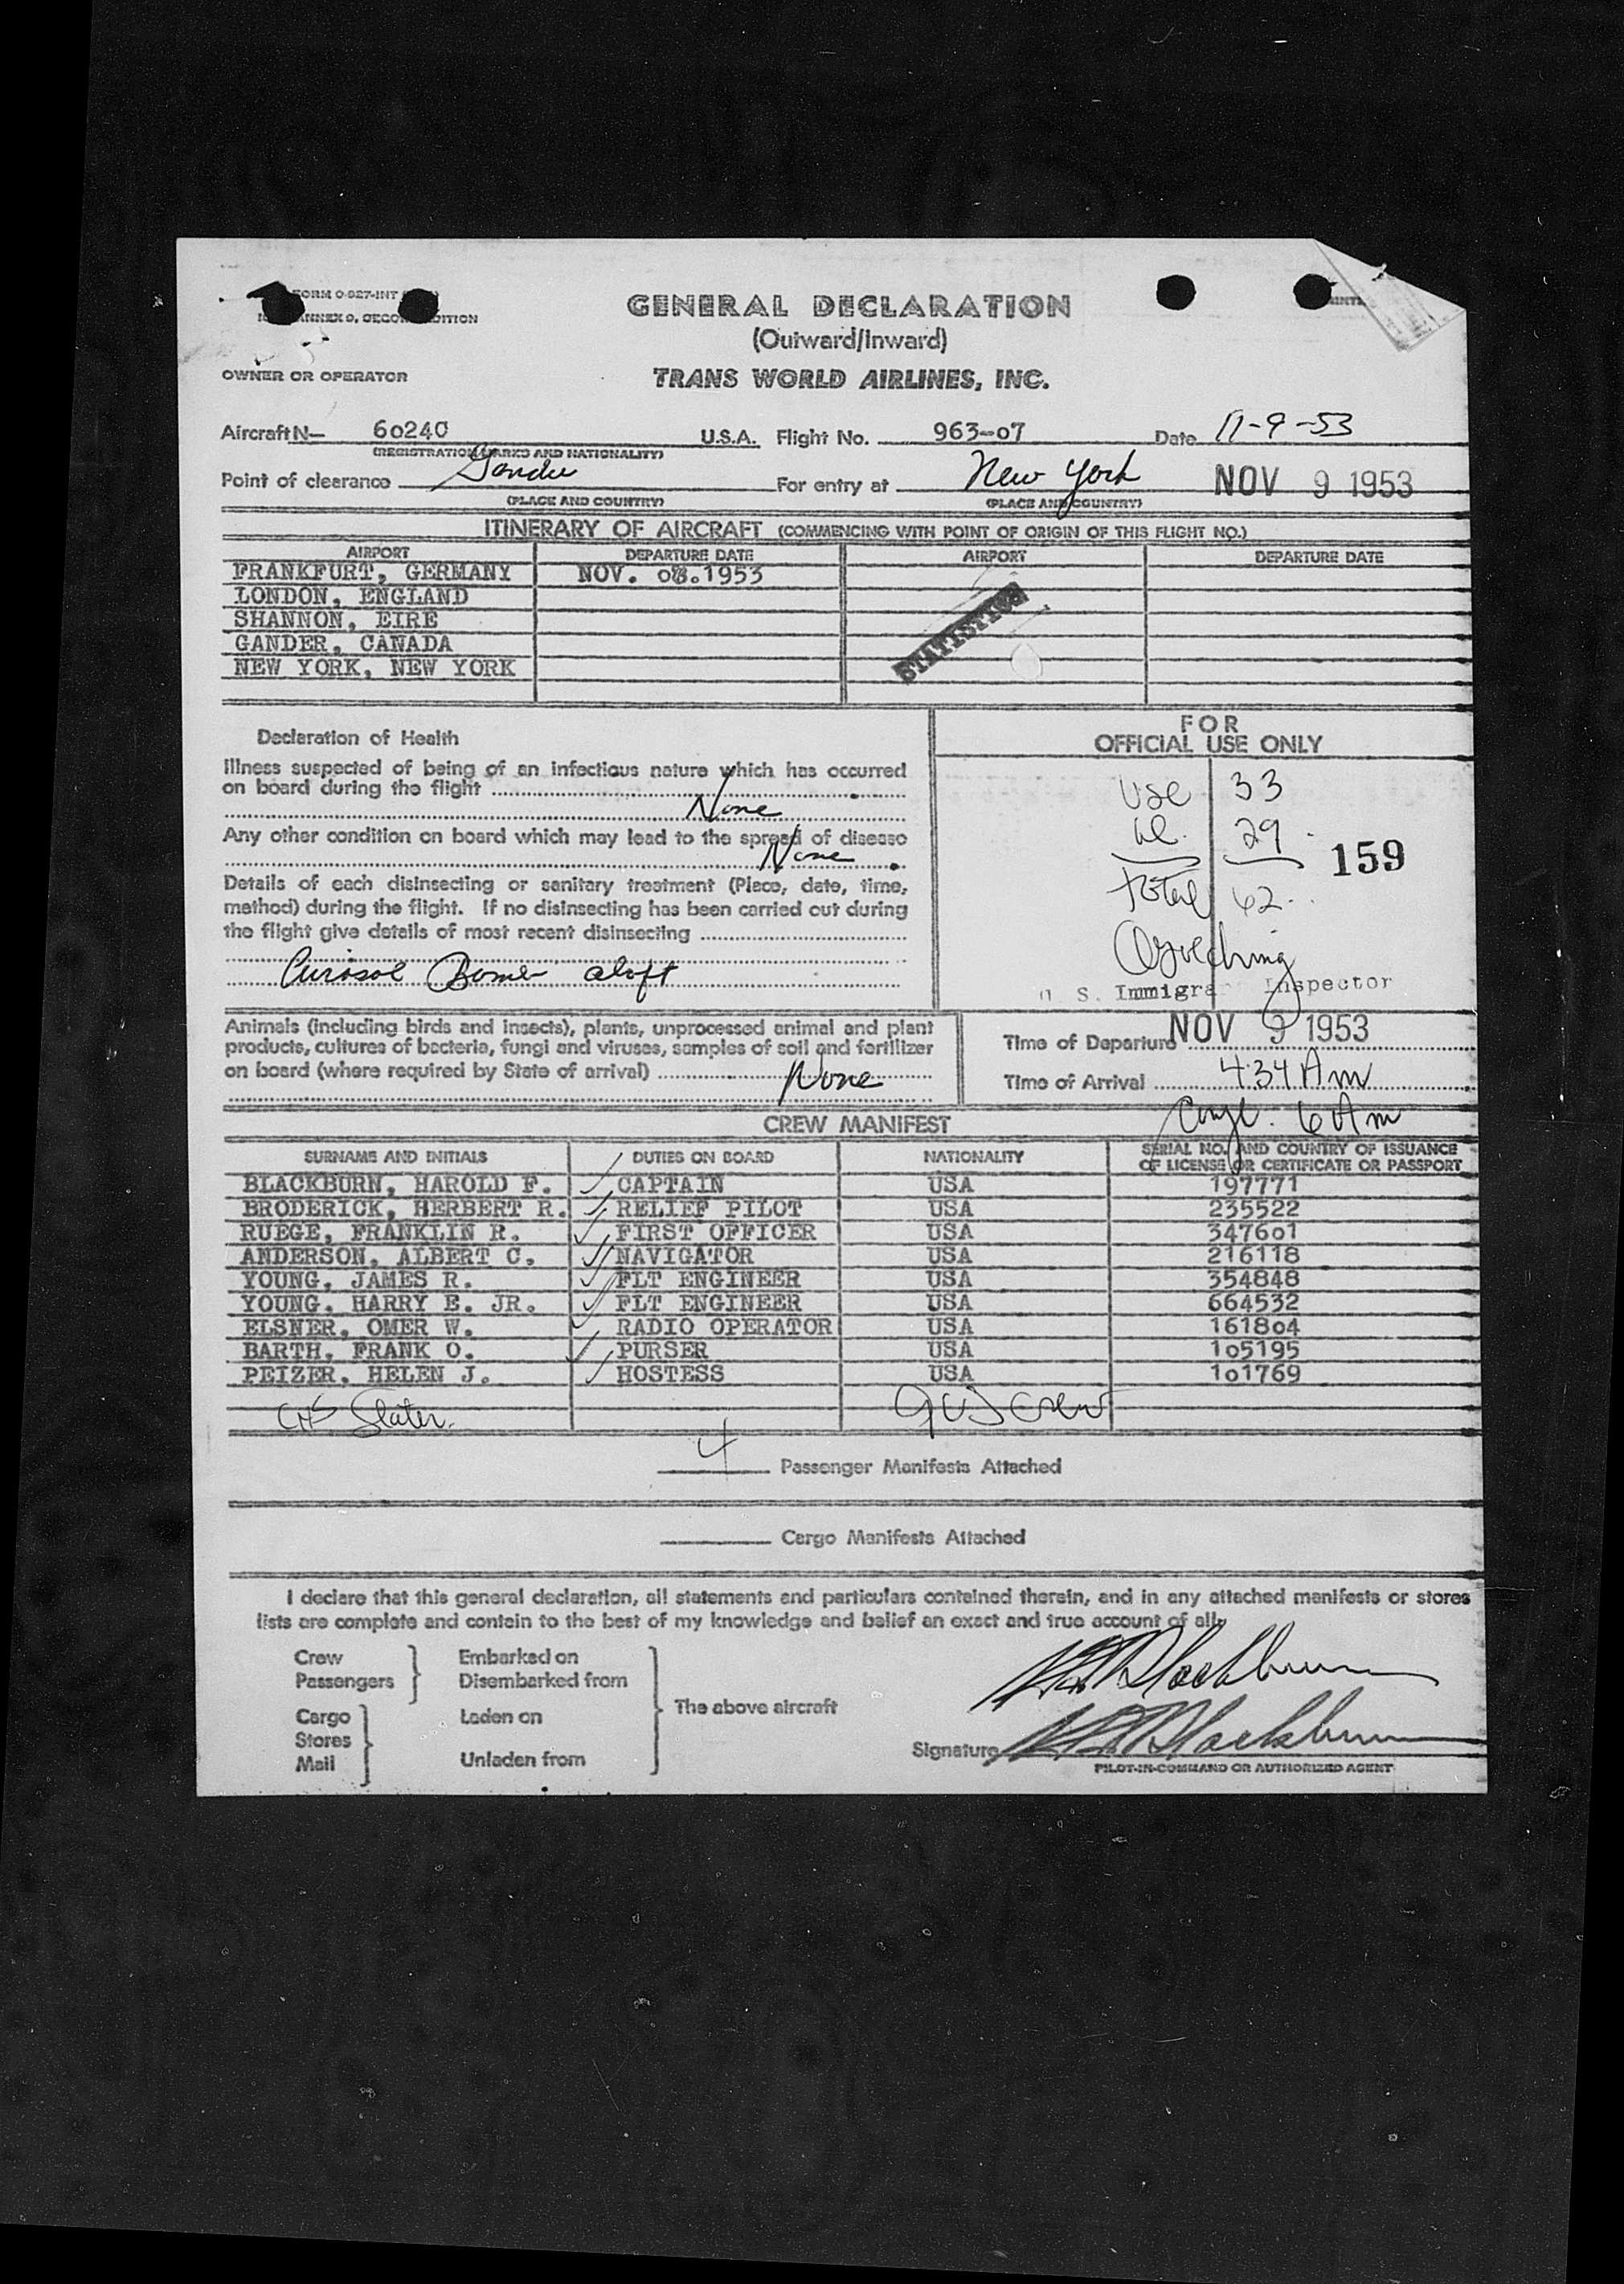 FORM O-927-INT
ANNEX 9, SECOND EDITION
GENERAL DECLARATION
(Outward/Inward)
OWNER OR OPERATOR
TRANS WORLD AIRLINES, INC.
Aircraft N— 60240 U.S.A. Flight No. 963-07 Date 11-9-53
(REGISTRATION MARKS AND NATIONALITY)
Point of clearance Gander For entry at New York NOV 9 1953
(PLACE AND COUNTRY) (PLACE AND COUNTRY)
ITINERARY OF AIRCRAFT (COMMENCING WITH POINT OF ORIGIN OF THIS FLIGHT NO.)
AIRPORT DEPARTURE DATE AIRPORT DEPARTURE DATE
FRANKFURT, GERMANY NOV. 08.1953
LONDON, ENGLAND
SHANNON, EIRE
GANDER, CANADA
NEW YORK, NEW YORK
STATISTICS
Declaration of Health
Illness suspected of being of an infectious nature which has occurred
on board during the flight
None
Any other condition on board which may lead to the spread of disease
None
Details of each disinsecting or sanitary treatment (Place, date, time,
method) during the flight. If no disinsecting has been carried out during
the flight give details of most recent disinsecting
aloft
FOR
OFFICIAL USE ONLY
USC 33
29
159
total 62
U. S. Immigrant Inspector
Animals (including birds and insects), plants, unprocessed animal and plant
products, cultures of bacteria, fungi and viruses, samples of soil and fertilizer
on board (where required by State of arrival)
None
Time of Departure NOV 9 1953
Time of Arrival 4:34 AM
6 AM
CREW MANIFEST
SURNAME AND INITIALS DUTIES ON BOARD NATIONALITY SERIAL NO. AND COUNTRY OF ISSUANCE
OF LICENSE OR CERTIFICATE OR PASSPORT
BLACKBURN, HAROLD F. CAPTAIN USA 197771
BRODERICK, HERBERT R. RELIEF PILOT USA 235522
RUEGE, FRANKLIN R. FIRST OFFICER USA 347601
ANDERSON, ALBERT C. NAVIGATOR USA 216118
YOUNG, JAMES R. FLT ENGINEER USA 354848
YOUNG, HARRY E. JR. FLT ENGINEER USA 664532
ELSNER, OMER W. RADIO OPERATOR USA 161804
BARTH, FRANK O. PURSER USA 105195
PEIZER, HELEN J. HOSTESS USA 101769
Slater. 9 crew
4 Passenger Manifests Attached
Cargo Manifests Attached
I declare that this general declaration, all statements and particulars contained therein, and in any attached manifests or stores
lists are complete and contain to the best of my knowledge and belief an exact and true account of all,
Crew
Passengers
Embarked on
Disembarked from
Cargo
Stores
Mail
Laden on
Unladen from
The above aircraft
H F Blackburn
Signature H F Blackburn
PILOT-IN-COMMAND OR AUTHORIZED AGENT